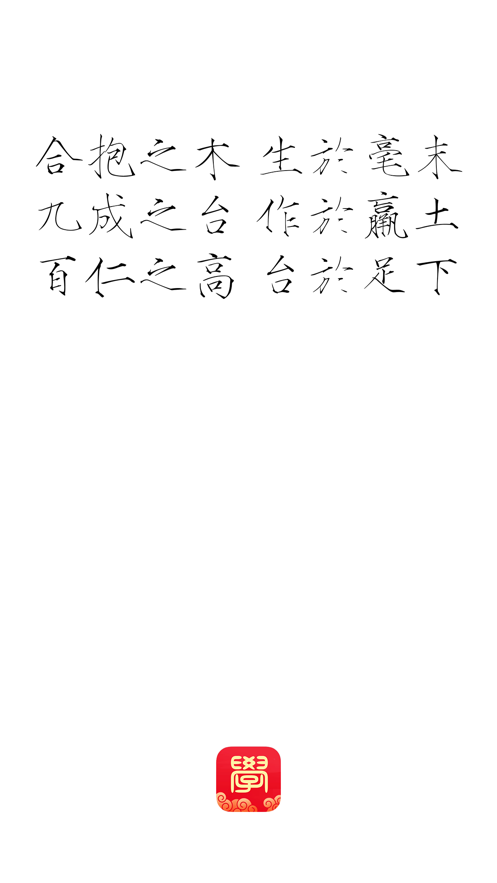 合抱之木 生於毫末
九成之台 作於羸土
百仁之高 台於足下
學